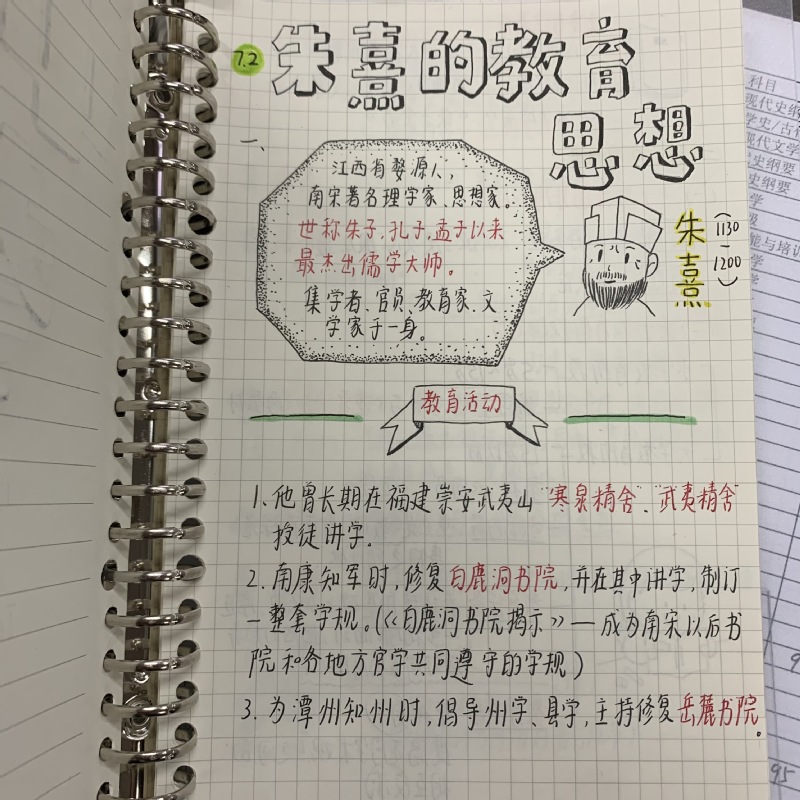 7.2 朱熹的教育
思想
一、
江西省婺源人，
南宋著名理学家、思想家。
世称朱子，孔子，孟子以来
最杰出儒学大师。
集学者、官员、教育家、文
学家于一身。
朱熹
(1130-1200)
教育活动
1. 他曾长期在福建崇安武夷山"寒泉精舍"、"武夷精舍"
授徒讲学.
2. 南康知军时，修复白鹿洞书院，并在其中讲学，制订
一整套学规。(《白鹿洞书院揭示》—成为南宋以后书
院和各地方官学共同遵守的学规)
3. 为潭州知州时，倡导州学、县学，主持修复岳麓书院。
科目
现代史纲
学史/古代
现代文学
史纲要
史纲要
学
能与培训
学
学
95